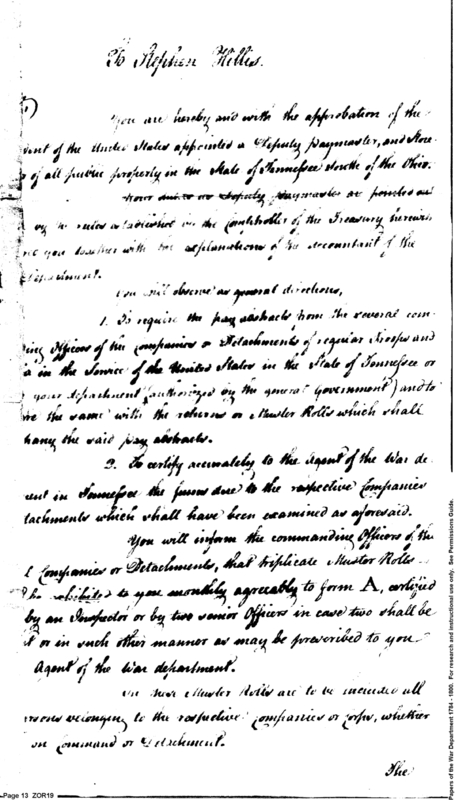 To Stephen Hillis.
You are hereby and with the approbation of the
dent of the United States appointed a Deputy paymaster, and Store
of all public property in the State of Tennessee South of the Ohio.
Your duties as Deputy paymaster are pointed out
by the rules established by the Comptroller of the Treasury herewith
you together with the explanations of the Accountant of the
Department.
You will observe as general directions,
1. To require the pay abstracts from the several com-
ing Officers of the Companies or Detachments of regular Troops and
in the Service of the United States in the State of Tennessee or
your department (authorized by the general Government) and to
re the same with the returns or Muster Rolls which shall
pany the said pay abstracts.
2. To certify accurately to the Agent of the War de-
ment in Tennessee the sums due to the respective Companies
tachments which shall have been examined as aforesaid.
You will inform the commanding Officers of the
Companies or Detachments, that triplicate Muster Rolls
be exhibited to you monthly agreeably to form A, certified
by an Inspector or by two senior Officers in case two shall be
t or in such other manner as may be prescribed to you
Agent of the War department.
In these Muster Rolls are to be included all
ersons belonging to the respective Companies or Corps, whether
on Command or Detachment.
The
Page 13 ZOR19
Papers of the War Department 1784 - 1800. For research and instructional use only. See Permissions Guide.